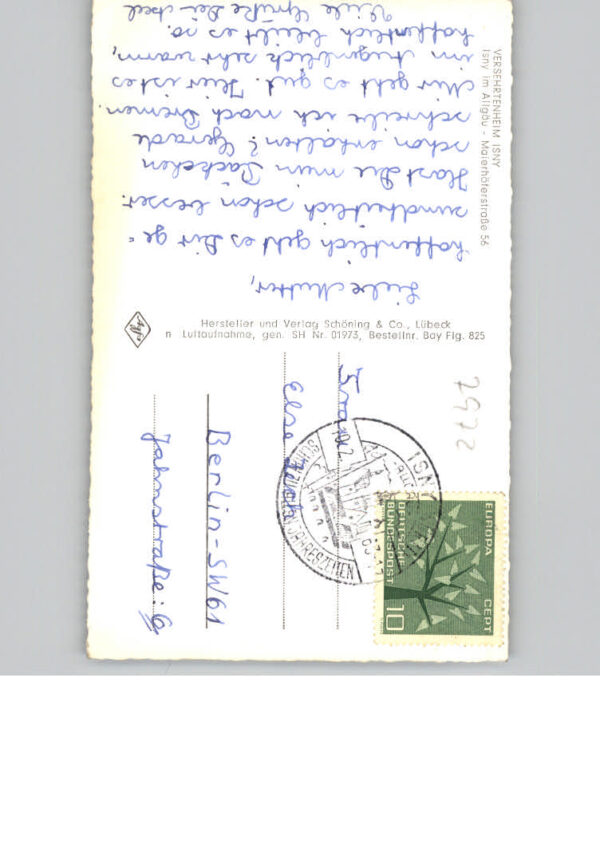 VERSEHRTENHEIM ISNY
Isny im Allgäu - Maierhöferstraße 56
Liebe Mutter,
hoffentlich geht es Dir ge-
sundheitlich schon besser.
Hast Du mein Päckchen
schon erhalten? Gerade
schreibe ich nach Bremen.
Mir geht es gut. Hier ist es
im Augenblick sehr warm,
hoffentlich bleibt es so.
Viele Grüße Dein
Hersteller und Verlag Schöning & Co., Lübeck
n Luftaufnahme, gen. SH Nr. 01973, Bestellnr. Bay Flg. 825
Agfa
Frau
Else
Berlin-SW61
Jahnstraße
2972
ISNY
JAHRESZEITEN
EUROPA CEPT
DEUTSCHE
BUNDESPOST
10